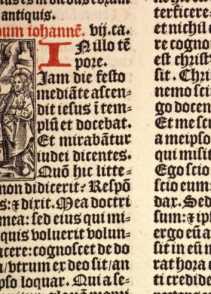 antiquis.
iohannē. vij.ca.
IN illo tē
pore.
Jam die festo
mediāte ascen-
dit iesus ī tem-
plū et docebat.
Et mirabātur
iudei dicentes.
Quō hic litte-
non didicerit? Respō
s: ⁊ dixit. Mea doctri
mea: sed eius qui mi-
quis voluerit volun-
cere: cognoscet de do
/ vtrum ex deo sit/ an
ipso loquar. Qui a se-
terficere
et nichil
re cogno
est christ
Sed
nemo sci
go docen
Et me sci
a meipso
qui misit
Ego scio
scio eum:
dar. Sed
sum: ⁊ ip
ergo eū a
sit in eū
rat hora e
ti credido